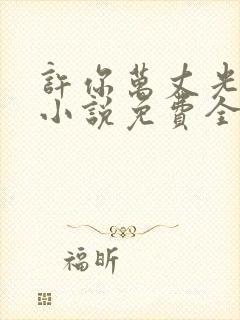 許你萬丈光
小說免費全
福昕